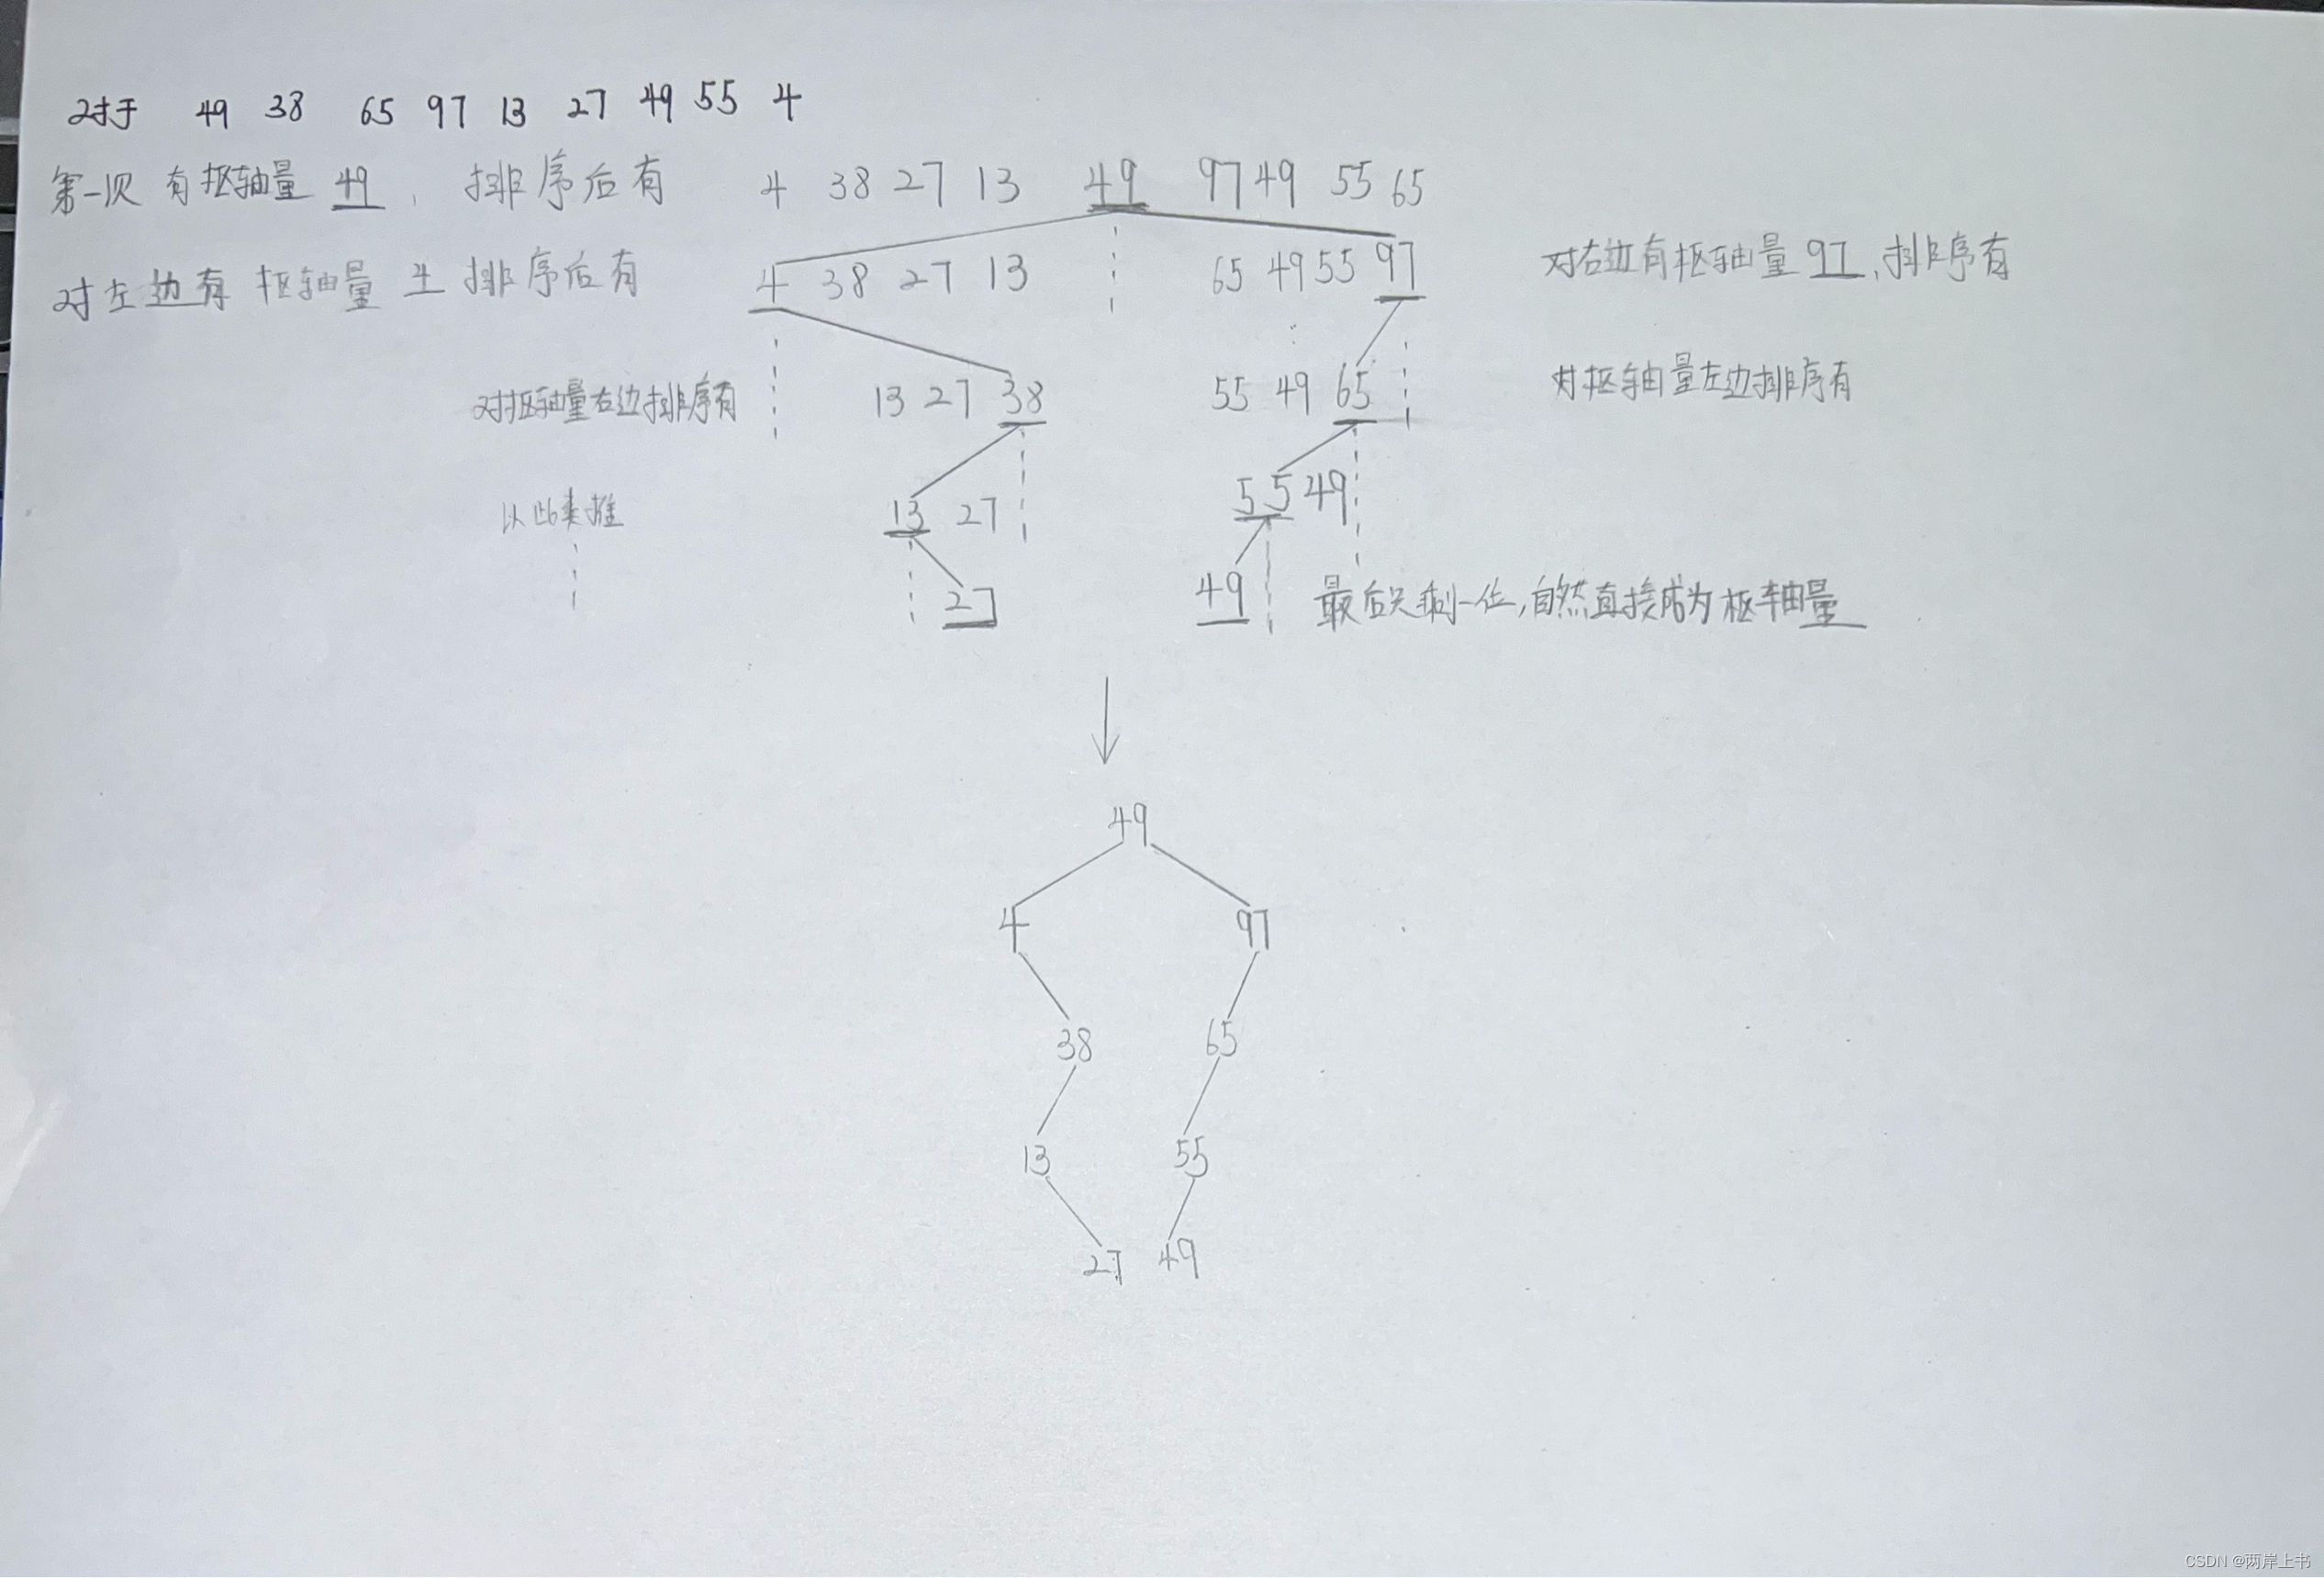 对于 49 38 65 97 13 27 49 55 4
第一次 有枢轴量 49 , 排序后有 4 38 27 13 49 97 49 55 65
对左边有 枢轴量 4 排序后有 4 38 27 13 65 49 55 97 对右边有枢轴量 97 , 排序有
对枢轴量右边排序有 13 27 38 55 49 65 对枢轴量左边排序有
以此类推 13 27 55 49
27 49 最后只剩一位,自然直接成为枢轴量
49
4 97
38 65
13 55
27 49
CSDN @两岸上书